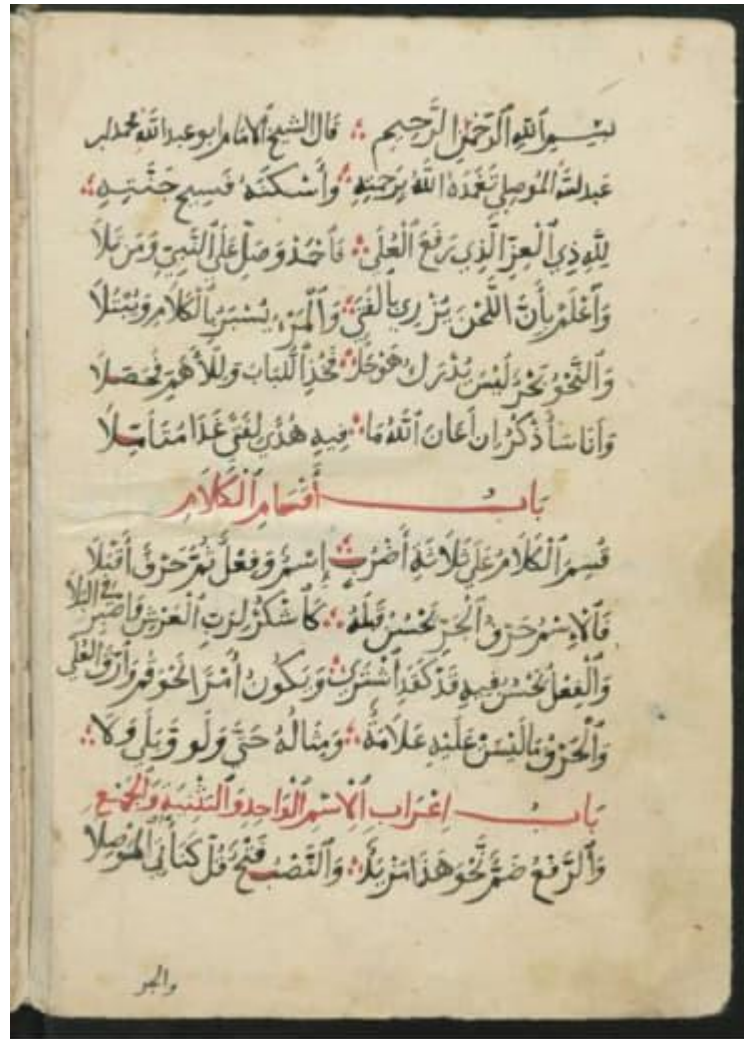 بسم الله الرحمن الرحيم ؞ قال الشيخ الامام ابو عبد الله محمد بن
عبد الله الموصلي تَغَمَّدَهُ اللَّهُ بِرَحْمَتِهِ ؞ وَأَسْكَنَهُ فَسِيحَ جَنَّتِهِ ؞
لِلَّهِ ذِي الْعِزِّ الَّذِي رَفَعَ الْعُلَى ؞ فَاحْمَدْ وَصَلِّ عَلَى النَّبِيِّ وَمَنْ تَلَا
وَاعْلَمْ بِأَنَّ اللَّحْنَ يُزْرِي بِالْفَتَى ؞ وَالْمَرْءُ يُسْبَرُ بِالْكَلَامِ وَيُبْتَلَا
وَالنَّحْوُ بَحْرٌ لَيْسَ يُدْرَكُ هَوْ ؞ فَخُذِ اللُّبَابَ وَلِلْأَهَمِّ فَحَصِّلَا
وَأَنَا سَأَذْكُرُ إِنْ أَعَانَ اللَّهُ مَا ؞ فِيهِ هُدًى لِفَتًى غَدَا مُتَأَمِّلَا
بَابُ أَقْسَامِ الْكَلَامِ
قُسِمَ الْكَلَامُ عَلَى ثَلَاثَةِ أَضْرُبٍ ؞ إِسْمٌ وَفِعْلٌ ثُمَّ حَرْفٌ أَقْبَلَا
فَالْإِسْمُ حَرْفُ الْجَرِّ يَحْسُنُ قَبْلَهُ ؞ كَاشْكُرْ لِرَبِّ الْعَرْشِ وَاصْبِرْ فِي الْبَلَا
وَالْفِعْلُ يَحْسُنُ فِيهِ قَدْ كَقَدِ اشْتَرَى ؞ وَيَكُونُ أَمْرًا نَحْوَ قُمْ وَارْقَ الْعُلَى
وَالْحَرْفُ مَا لَيْسَتْ عَلَيْهِ عَلَامَةٌ ؞ وَمِثَالُهُ حَتَّى وَلَوْ وَبَلَى وَلَا ؞
بَابُ إِعْرَابِ الْاِسْمِ الْوَاحِدِ وَالتَّثْنِيَةِ وَالْجَمْعِ
وَالرَّفْعُ ضَمٌّ نَحْوَ هَذَا ؞ وَالنَّصْبُ فَتْحٌ قُلْ كَنَابِي الْمَوْصِلَا
والجر